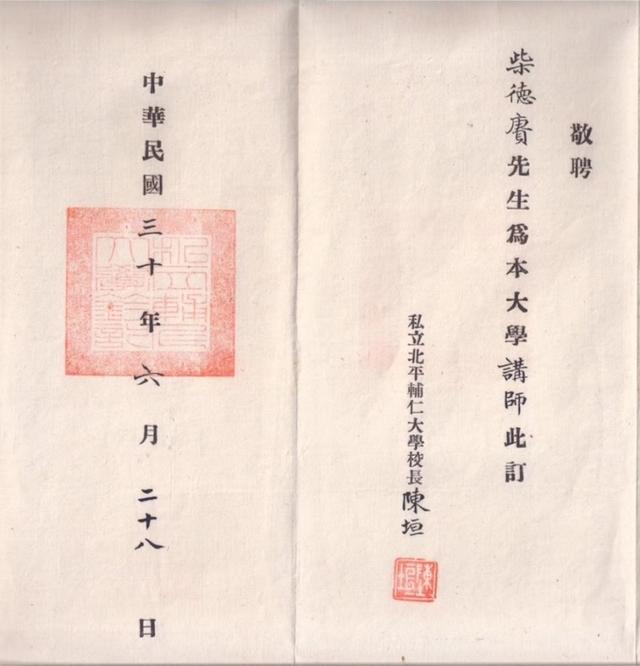 敬聘
柴德賡先生為本大學講師此訂
私立北平輔仁大學校長陳垣
陳垣
中華民國三十年六月二十八日